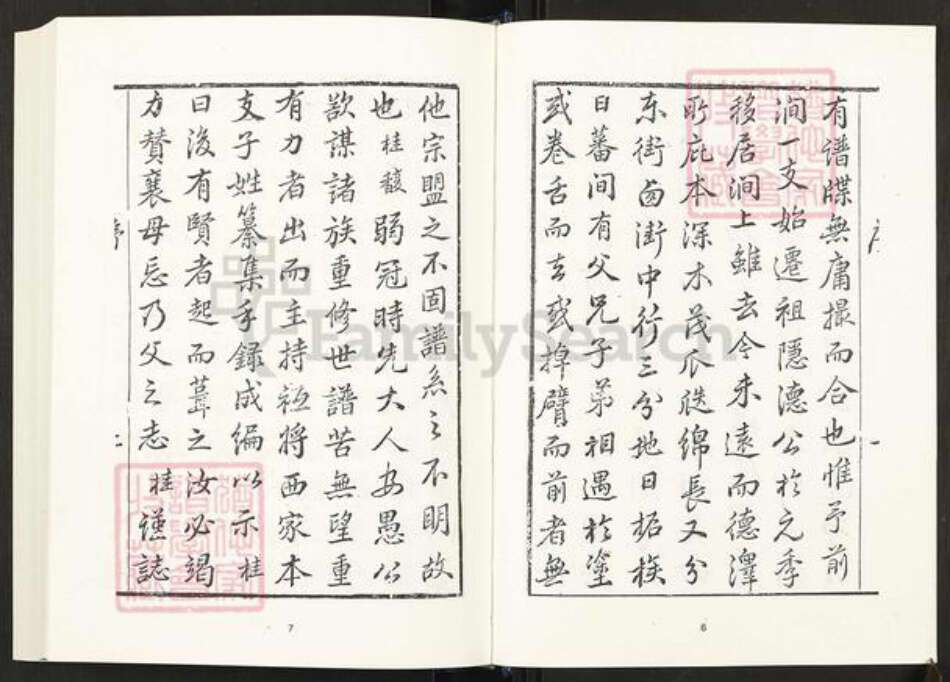 有譜牒無庸撮而合也惟予前
澗一支始遷祖隱德公於元季
移居澗上雖去今未遠而德澤
所庇本深木茂瓜瓞綿長又分
東街西街中行三分地日拓族
日蕃間有父兄子弟相遇於塗
或卷舌而去或掉臂而前者無
序
一
6
他宗盟之不固譜系之不明故
也桂馥弱冠時先大人安愚公
欲謀諸族重修世譜苦無望重
有力者出而主持祗將西家本
支子姓纂集手錄成編以示桂
曰後有賢者起而葺之汝必竭
力贊襄毋忘乃父之志 桂謹誌
序
二
7
FamilySearch